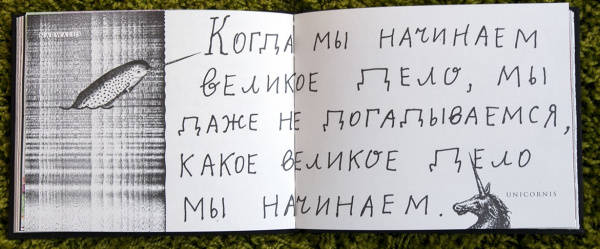 NARWALUS
Когда мы начинаем
великое дело, мы
даже не догадываемся,
какое великое дело
мы начинаем.
UNICORNIS